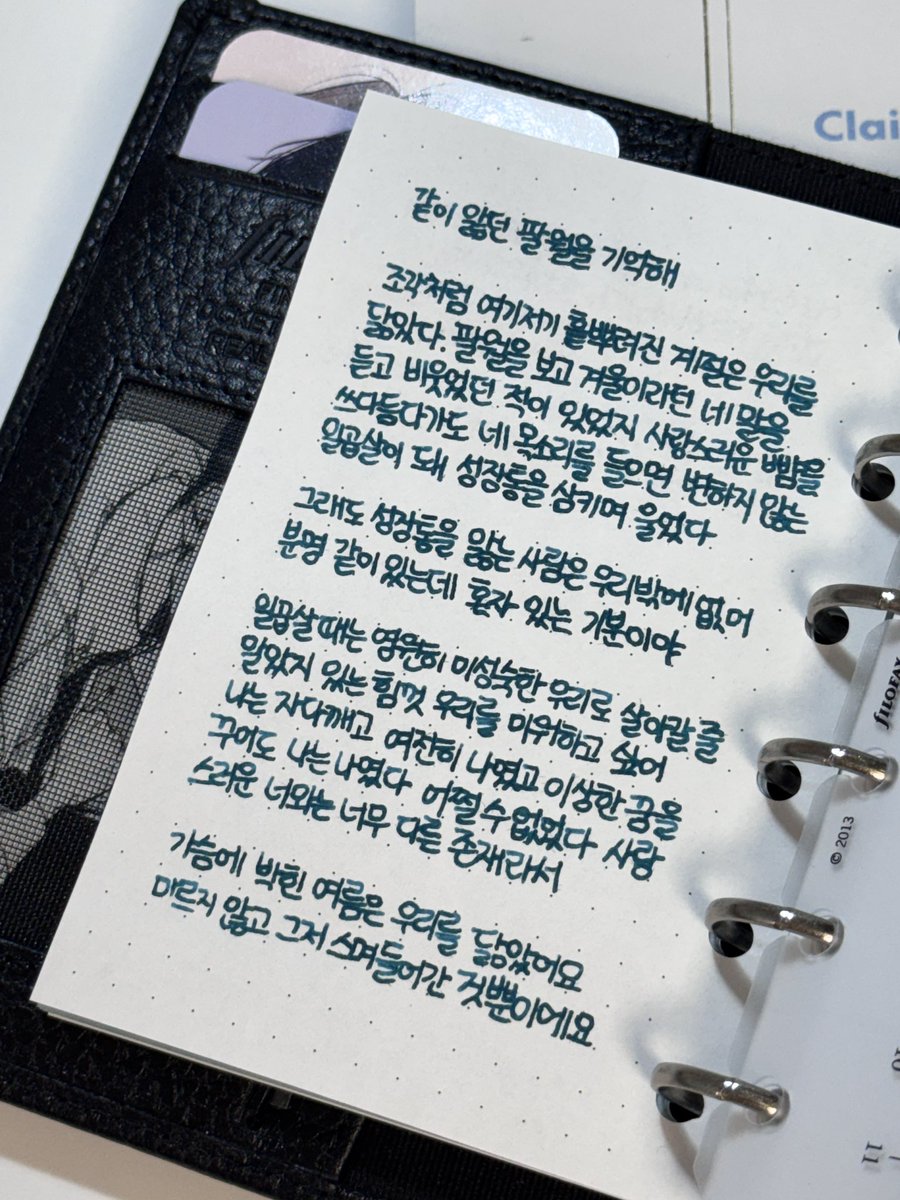 Clai
같이 앓던 팔월을 기억해
조각처럼 여기저기 흩뿌려진 계절은 우리를
닮았다. 팔월을 보고 겨울이라던 네 말을
듣고 비웃었던 적이 있었지 사랑스러운 뺨을
쓰다듬다가도 네 목소리를 들으면 변하지 않는
일곱살이 돼 성장통을 삼키며 울었다
그래도 성장통을 앓는 사람은 우리밖에 없어
분명 같이 있는데 혼자 있는 기분이야
일곱살 때는 영원히 미성숙한 우리로 살아갈 줄
알았지 있는 힘껏 우리를 미워하고 싶어
나는 자다깨고 여전히 나였고 이상한 꿈을
꾸어도 나는 나였다 어쩔 수 없었다 사랑
스러운 너와는 너무 다른 존재라서
가슴에 박힌 여름은 우리를 닮았어요
마르지 않고 그저 스며들어간 것뿐이에요
filofax
© 2013
10
11